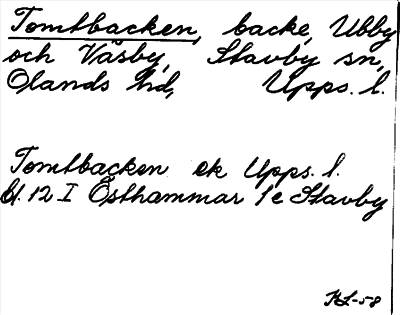 Tomtbacken, backe, Ubby
och Väsby, Stavby sn,
Olands hd, Upps. l.
Tomtbacken ek Upps. l.
bl. 12 I Östhammar 1e Stavby
HL-58